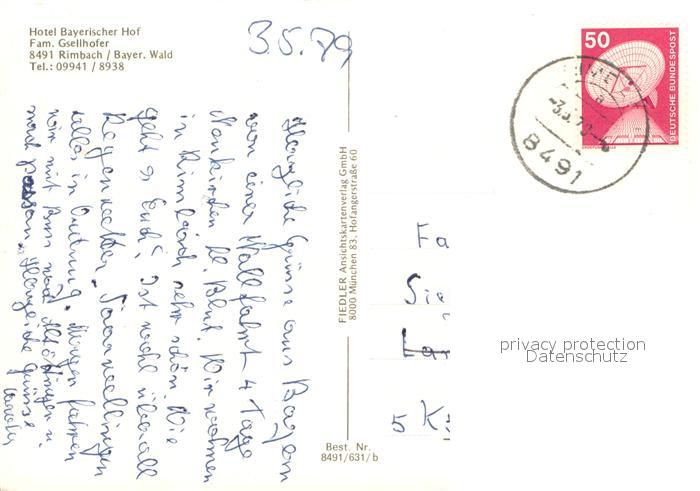 Hotel Bayerischer Hof
Fam. Gsellhofer
8491 Rimbach / Bayer. Wald
Tel.: 09941 / 8938
3.5.79
50
DEUTSCHE BUNDESPOST
8491
Herzliche Grüsse aus Bayern
von einer Wallfahrt 4 Tage
Neukirchen hl. Blut. Wir wohnen
in Rimbach sehr schön. Wie
geht es Euch? Ist wohl überall
Regenwetter.
alles in Ordnung. Morgen fahren
wir mit Bus nach Altöttingen u.
nach Passau. Herzliche Grüsse
FIEDLER Ansichtskartenverlag GmbH
8000 München 83, Hofangerstraße 60
Best. Nr.
8491/631/b
Fa
Sie
Lan
5 K
privacy protection
Datenschutz